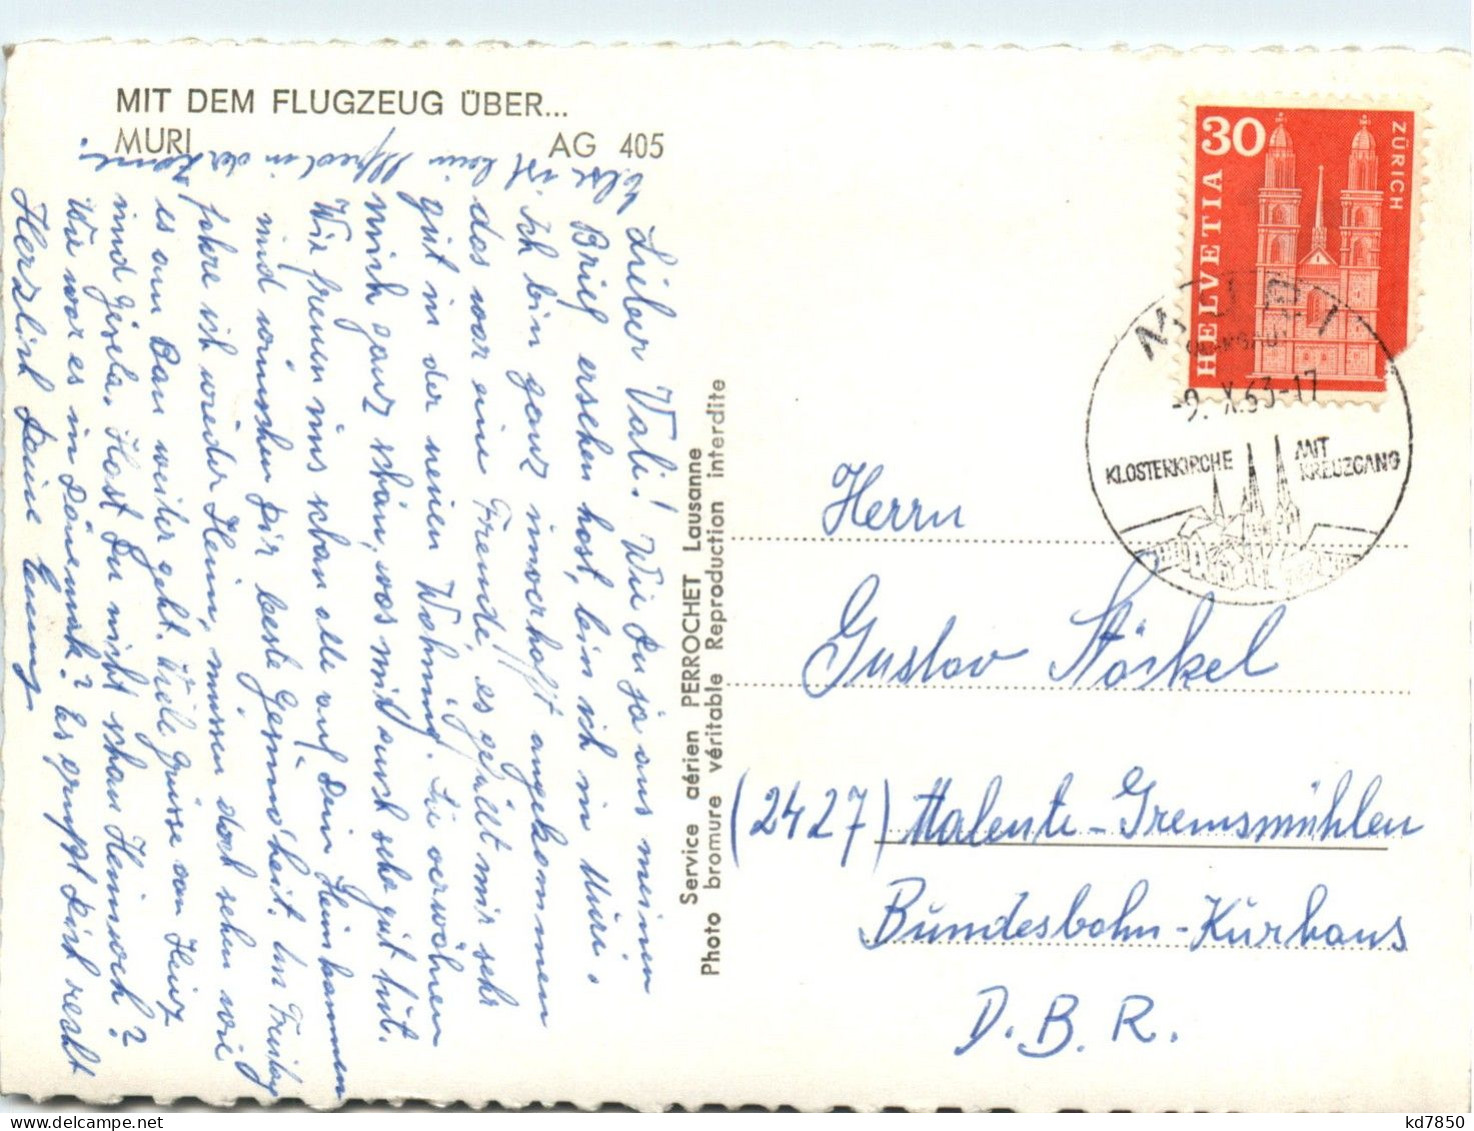 MIT DEM FLUGZEUG ÜBER...
MURI AG 405
Lieber Vati! Wie Du ja aus meinem
Brief ersehen hast, bin ich in Muri.
Ich bin ganz unverhofft angekommen
das war eine Freude, es gefällt mir sehr
gut in der neuen Wohnung. Sie verwöhnen
mich ganz schön, was mir sonst sehr gut tut.
Wir freuen uns schon alle auf Dein Heimkommen
und wünschen Dir beste Gesundheit. Am Freitag
fahre ich wieder Heim, müssen doch sehen wie
es am Bau weiter geht. Viele Grüsse von Heinz
und Gisela. Hast Du nicht schon Heimweh?
Wie war es in Dänemark? Es grüsst Dich recht
Herzlich Deine
ist kein in der
Service aérien PERROCHET Lausanne
Photo bromure véritable Reproduction interdite
HELVETIA
30
ZÜRICH
MURI
-9. X.63-17
KLOSTERKIRCHE
MIT
KREUZGANG
Herrn
Gustav Stöckel
(2427) Malente-Gremsmühlen
Bundesbahn-Kurhaus
D.B.R.
kd7850